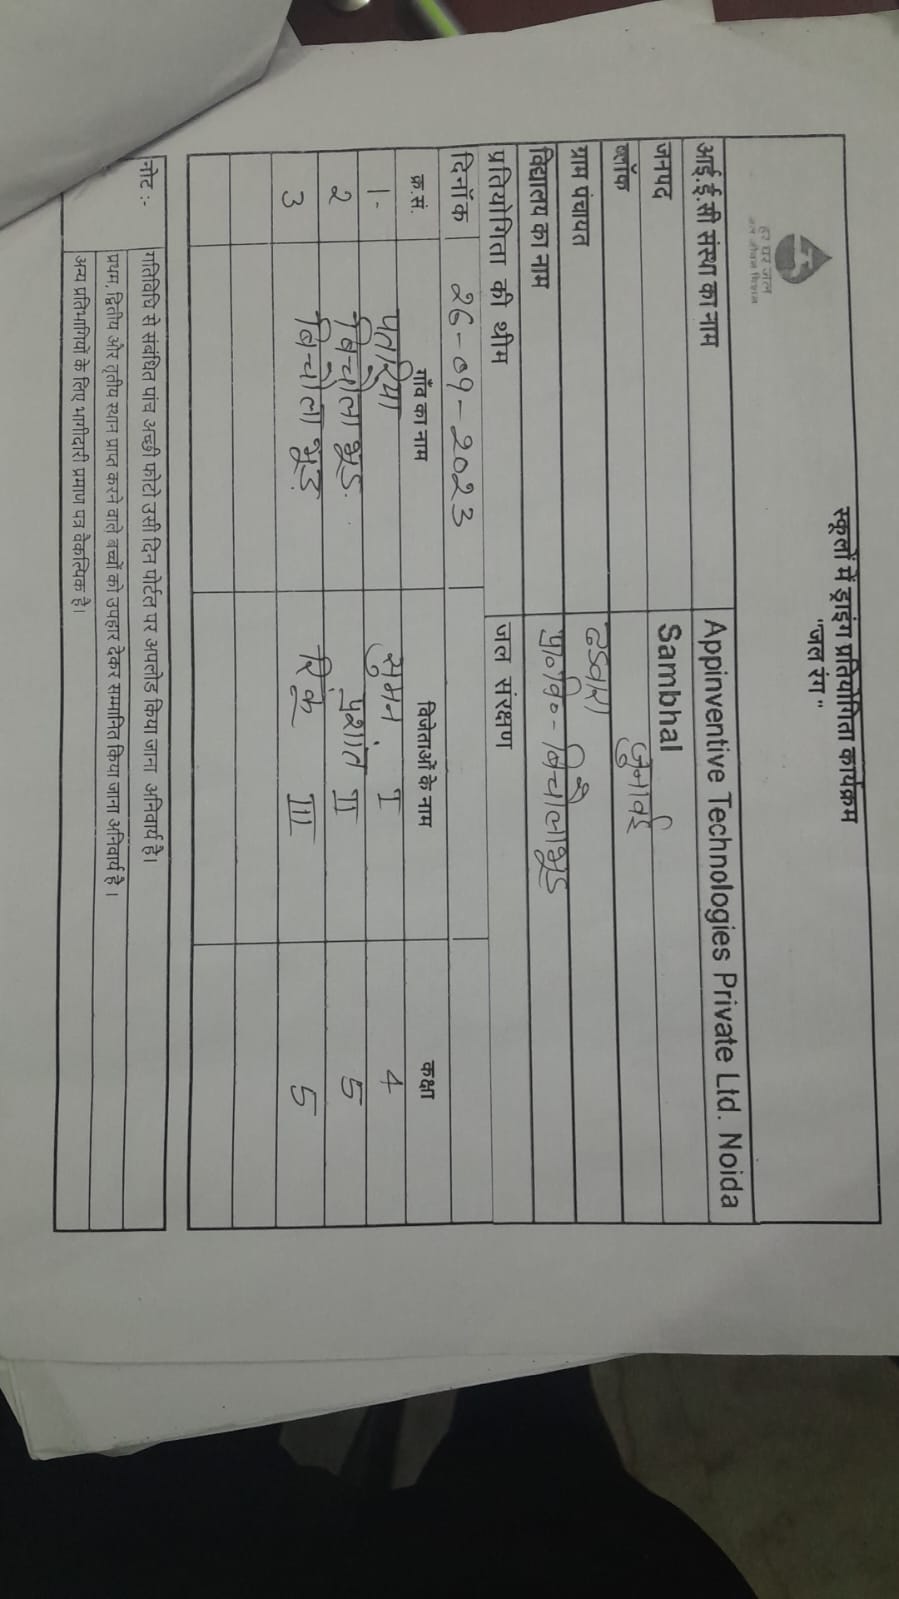 हर घर जल
जल जीवन मिशन
स्कूलों में ड्राइंग प्रतियोगिता कार्यक्रम
"जल रंग"
आई.ई.सी संस्था का नाम Appinventive Technologies Private Ltd. Noida
जनपद Sambhal
ब्लॉक जुनावई
ग्राम पंचायत
विद्यालय का नाम प्रा० वि०-बिचौलाभूड़
प्रतियोगिता की थीम जल संरक्षण
दिनॉक 26-09-2023
क्र.सं. गाँव का नाम विजेताओं के नाम कक्षा
1- सुमन I 4
2 बिचौला भूड़ प्रशांत II 5
3 बिचौला भूड़ रिंकू III 5
नोट :- गतिविधि से संबंधित पांच अच्छी फोटो उसी दिन पोर्टल पर अपलोड किया जाना अनिवार्य है।
प्रथम, द्वितीय और तृतीय स्थान प्राप्त करने वाले बच्चों को उपहार देकर सम्मानित किया जाना अनिवार्य है ।
अन्य प्रतिभागियों के लिए भागीदारी प्रमाण पत्र वैकल्पिक है।